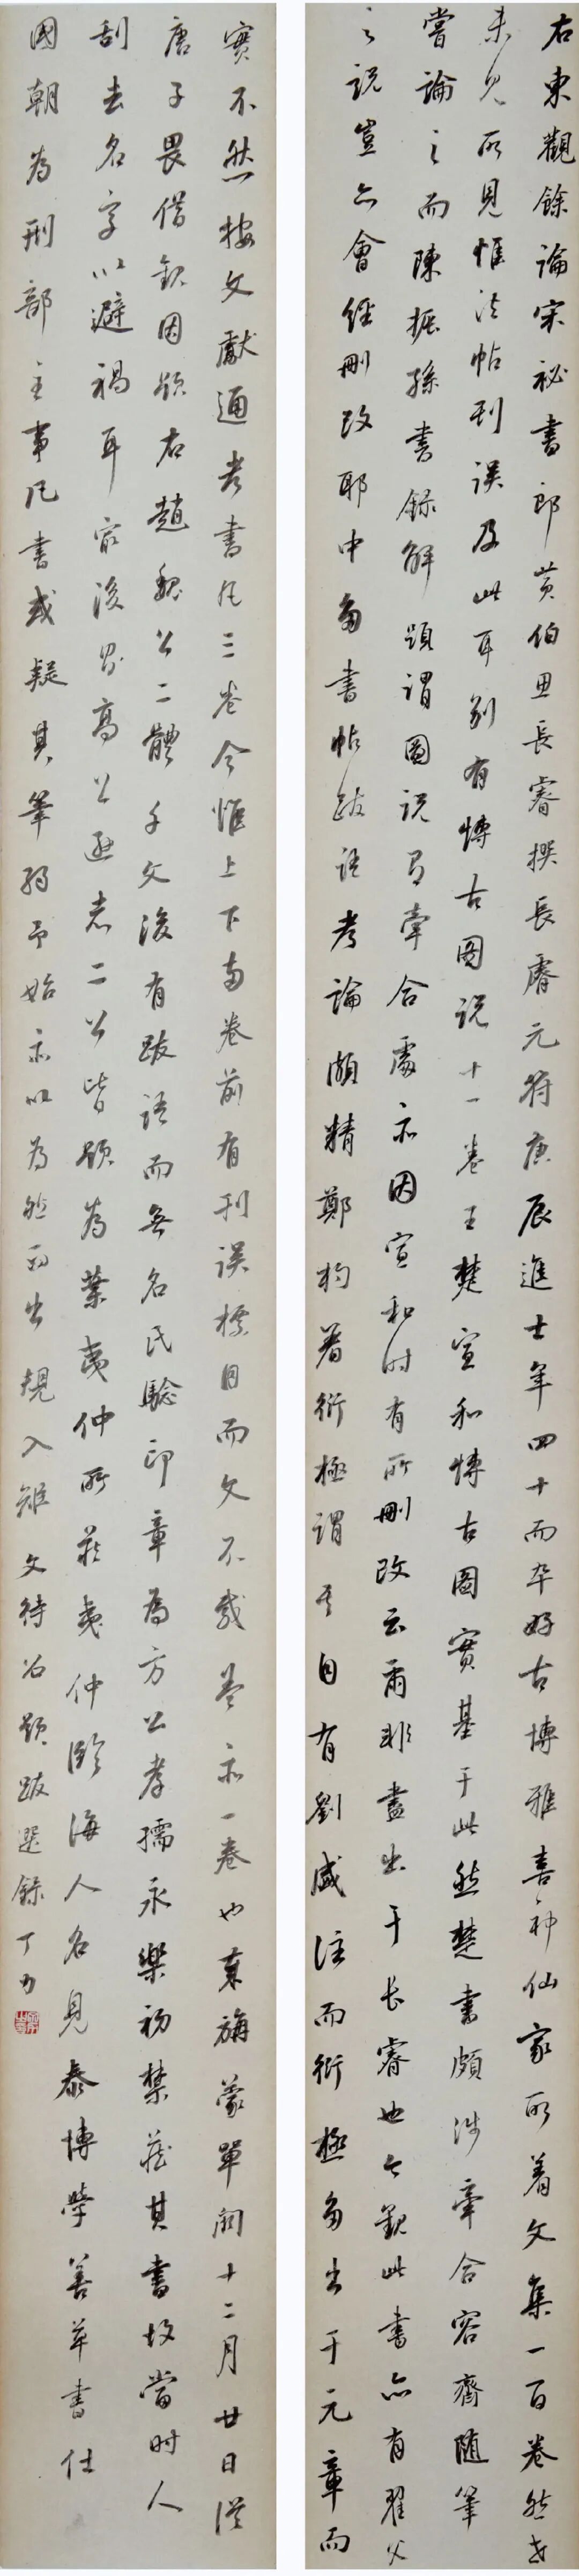 右東觀餘論宋祕書郎黃伯思長睿撰長睿元符庚辰進士年四十而卒好古博雅喜神仙家所著文集一百卷然世
未見所見惟法帖刊誤及此耳別有博古圖說十一卷王楚宣和博古圖實基于此然楚書頗涉牽合容齋隨筆
嘗論之而陳振孫書錄解題謂圖說有牽合處亦因宣和時有所刪改云爾非盡出于長睿也今觀此書亦有翟父
之說豈亦會經刪改耶中多書帖跋語考論頗精鄭杓著衍極謂其目有劉盛注而衍極多出于元章而
實不然按文獻通考書凡三卷今惟上下兩卷前有刊誤標目而文不載蓋亦一卷也東旃蒙單閼十二月廿日從
唐子畏借觀因題右趙魏公二體千文後有跋語而無名氏驗印章為方公孝孺永樂初禁藏其書故當時人
刮去名字以避禍耳最後界高公遜志二公皆題為葉夷仲所藏夷仲臨海人名見泰博學善草書仕
國朝為刑部主事凡書或疑其筆弱予始亦以為然而出規入矩 文待詔題跋選錄 丁力